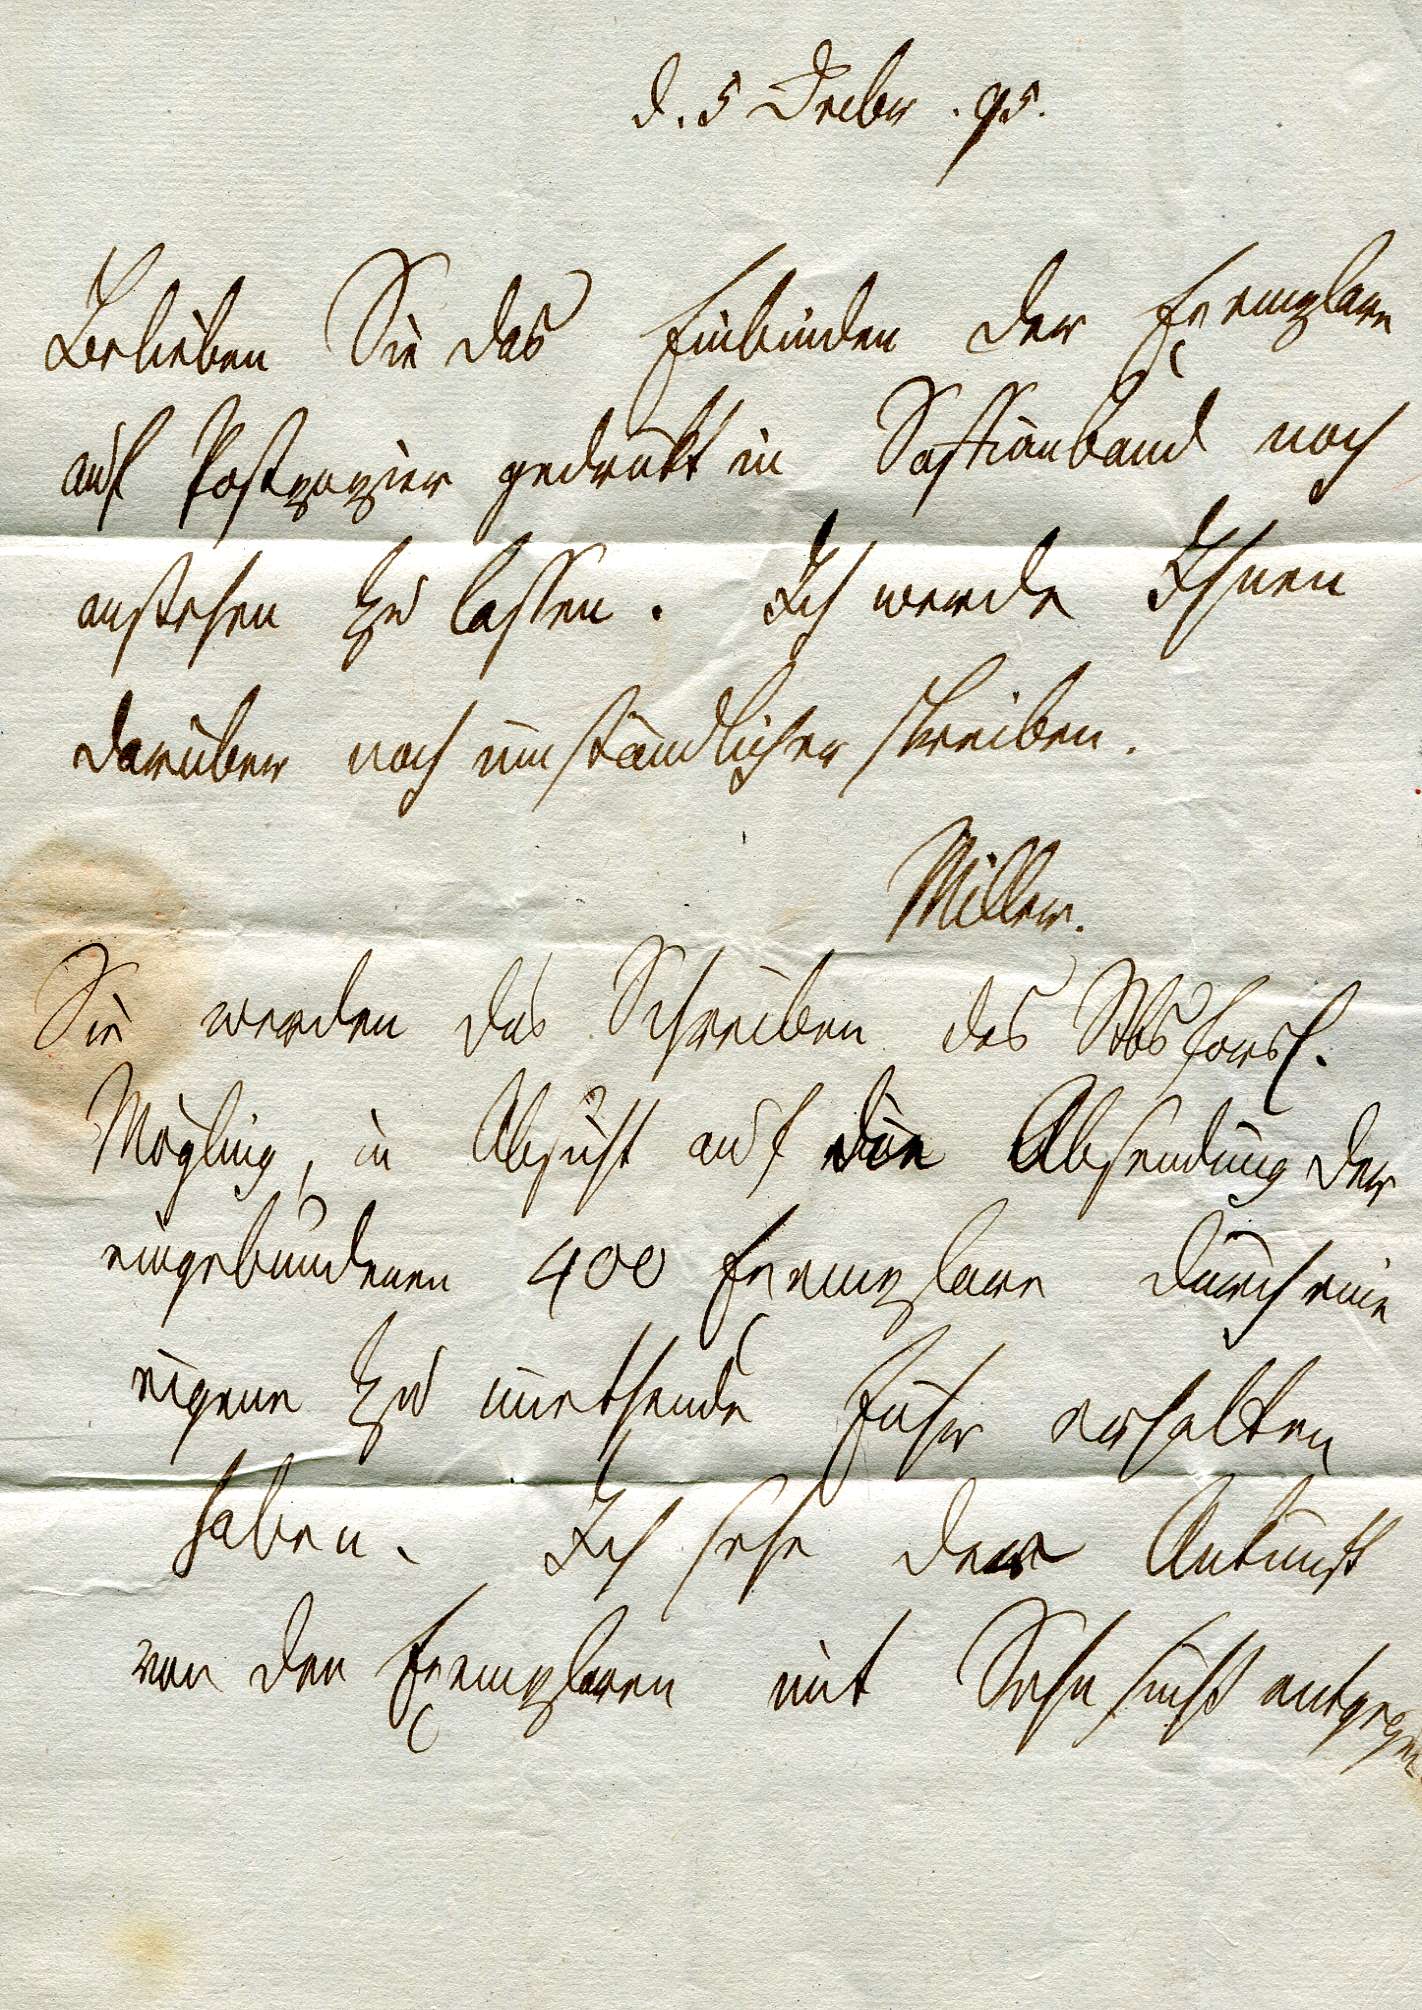 d. 5 Decbr. 95.
Belieben Sie das Einbinden der Exemplare
auf Postpapier gedrukt in Saffianband noch
anstehen zu lassen. Ich werde Ihnen
darüber noch umständlicher schreiben.
Miller.
Sie werden das Schreiben des
Mögling, in Absicht auf die Absendung der
eingebundenen 400 Exemplare durch eine
eigene zu miethende Fuhr erhalten
haben. Ich sehe der Ankunft
von den Exemplaren mit Sehnsucht entgegen.